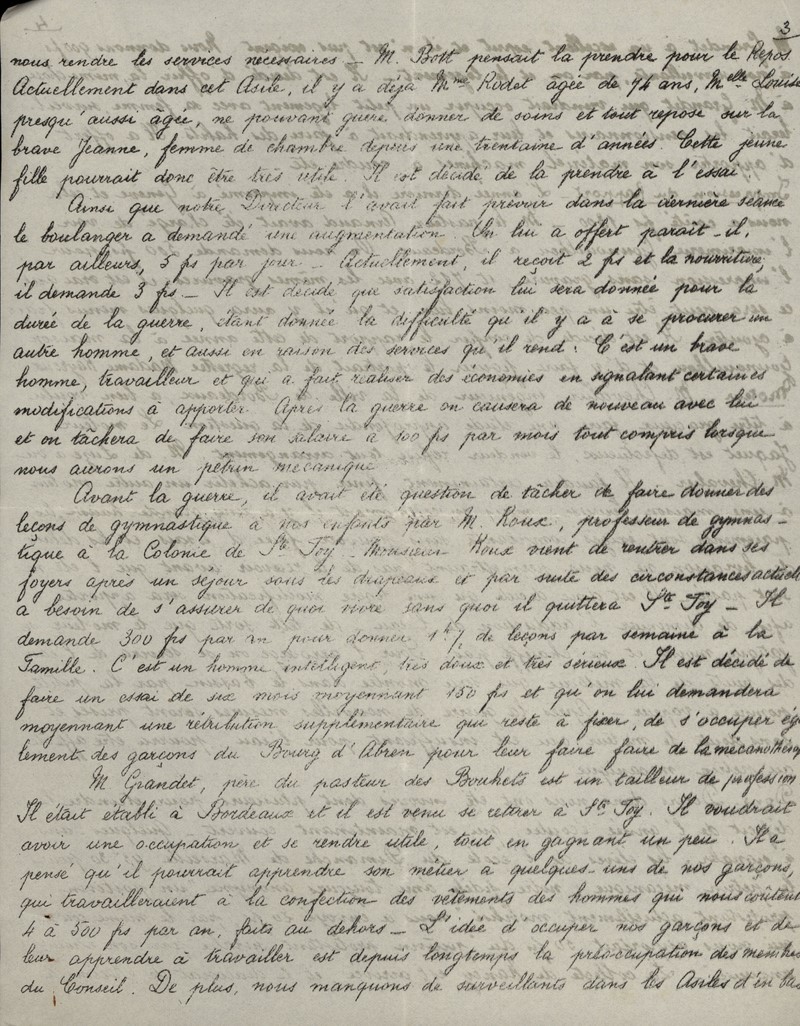 3
nous rendre les services nécessaires _ M. Bost pensait la prendre pour le Repos
Actuellement dans cet Asile, il y a déjà Mme Rodet âgée de 74 ans, Melle Louise
presqu'aussi âgée, ne pouvant guère donner de soins et tout repose sur la
brave Jeanne, femme de chambre depuis une trentaine d'années. Cette jeune
fille pourrait donc être très utile. Il est décidé de la prendre à l'essai.
Ainsi que notre Directeur l'avait fait prévoir dans la dernière séance
le boulanger a demandé une augmentation. On lui a offert paraît-il,
par ailleurs, 5 frs par jour _ Actuellement, il reçoit 2 frs et la nourriture,
il demande 3 frs _ Il est décidé que satisfaction lui sera donnée pour la
durée de la guerre, étant donnée la difficulté qu'il y a à se procurer un
autre homme, et aussi en raison des services qu'il rend. C'est un brave
homme, travailleur et qui a fait réaliser des économies en signalant certaines
modifications à apporter. Après la guerre on causera de nouveau avec lui
et on tâchera de faire son salaire à 100 frs par mois tout compris lorsque
nous aurons un pétrin mécanique
Avant la guerre, il avait été question de tâcher de faire donner des
leçons de gymnastique à nos enfants par M. Roux, professeur de gymnas-
tique à la Colonie de Ste Foy _ Monsieur Roux vient de rentrer dans ses
foyers après un séjour sous les drapeaux et par suite des circonstances
a besoin de s'assurer de quoi vivre sans quoi il quittera Ste Foy _ Il
demande 300 frs par an pour donner 1h 1/2 de leçons par semaine à la
Famille. C'est un homme intelligent, très doux et très sérieux. Il est décidé de
faire un essai de six mois moyennant 150 frs et qu'on lui demandera
moyennant une rétribution supplémentaire qui reste à fixer, de s'occuper éga
lement des garçons du Bourg d'Abren pour leur faire faire de la
M Grandet, père du pasteur des Bouhets est un tailleur de profession
Il était établi à Bordeaux et il est venu se retirer à Ste Foy. Il voudrait
avoir une occupation et se rendre utile, tout en gagnant un peu. Il a
pensé qu'il pourrait apprendre son métier à quelques-uns de nos garçons,
qui travailleraient à la confection des vêtements des hommes qui nous coûtent
4 à 500 frs par an, faits au dehors _ L'idée d'occuper nos garçons et de
leur apprendre à travailler est depuis longtemps la préoccupation des membres
du Conseil. De plus, nous manquons de surveillants dans les Asiles d'en bas